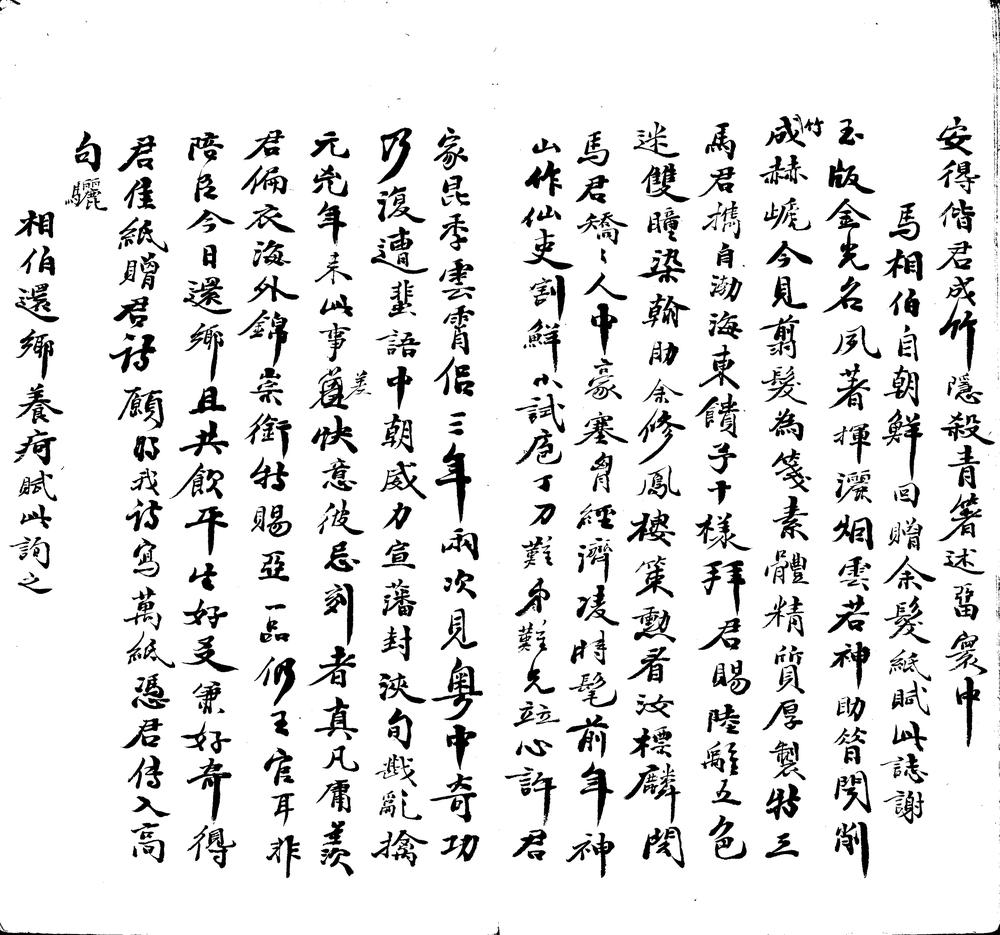 安得偕君成竹隱殺青箸述畱寰中
馬相伯自朝鮮回贈余髮紙賦此誌謝
玉版金光名夙著揮灑烟雲若神助昝閔削
竹成赫蹏今見翦髮為箋素體精質厚製特三
馬君攜自渤海東饋予十樣拜君賜陸離五色
迷雙瞳染翰助余修鳳樓策勳看汝標麟閣
馬君矯〻人中豪塞胷經濟凌時髦前年神
山作仙吏割鮮小試庖丁刀難弟難兄竝心許君
家昆季雲霄侶三年兩次見粵中奇功
乃復遭蜚語中朝威力宣藩封浹旬戡亂擒
元兇年來此事差快意彼忌刻者真凡庸羨
君偏衣海外錦崇銜特賜亞一品仍王官耳非
陪臣今日還鄉且共飲平生好文兼好奇得
君佳紙贈君詩願將我詩寫萬紙憑君傳入高
句驪
相伯還鄉養疴賦此詢之